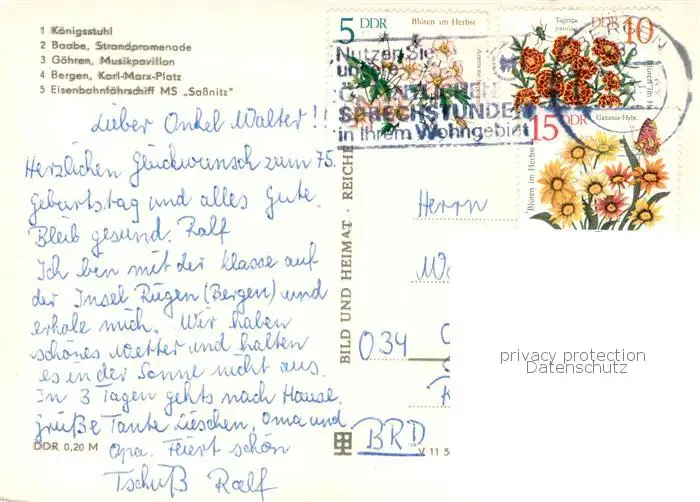 1 Königsstuhl
2 Baabe, Strandpromenade
3 Göhren, Musikpavillon
4 Bergen, Karl-Marx-Platz
5 Eisenbahnfährschiff MS „Saßnitz"
Lieber Onkel Walter!!
Herzlichen Glückwunsch zum 75.
Geburtstag und alles Gute.
Bleib gesund. Ralf
Ich bin mit der Klasse auf
der Insel Rügen (Bergen) und
erhole mich. Wir haben
schönes Wetter und halten
es in der Sonne nicht aus.
In 3 Tagen gehts nach Hause.
grüße Tante Lieschen, Oma und
Opa. Feiert schön
Tschüß Ralf
DDR 0,20 M
BILD UND HEIMAT · REICHE
V 11 5
5 DDR
Blüten im Herbst
DDR 10
Blüten im H
15 DDR
Gazania-Hybr.
Blüten im Herbst
Nutzen Sie
SPRECHSTUNDEN
in Ihrem Wohngebiet
Herrn
034
BRD
privacy protection
Datenschutz